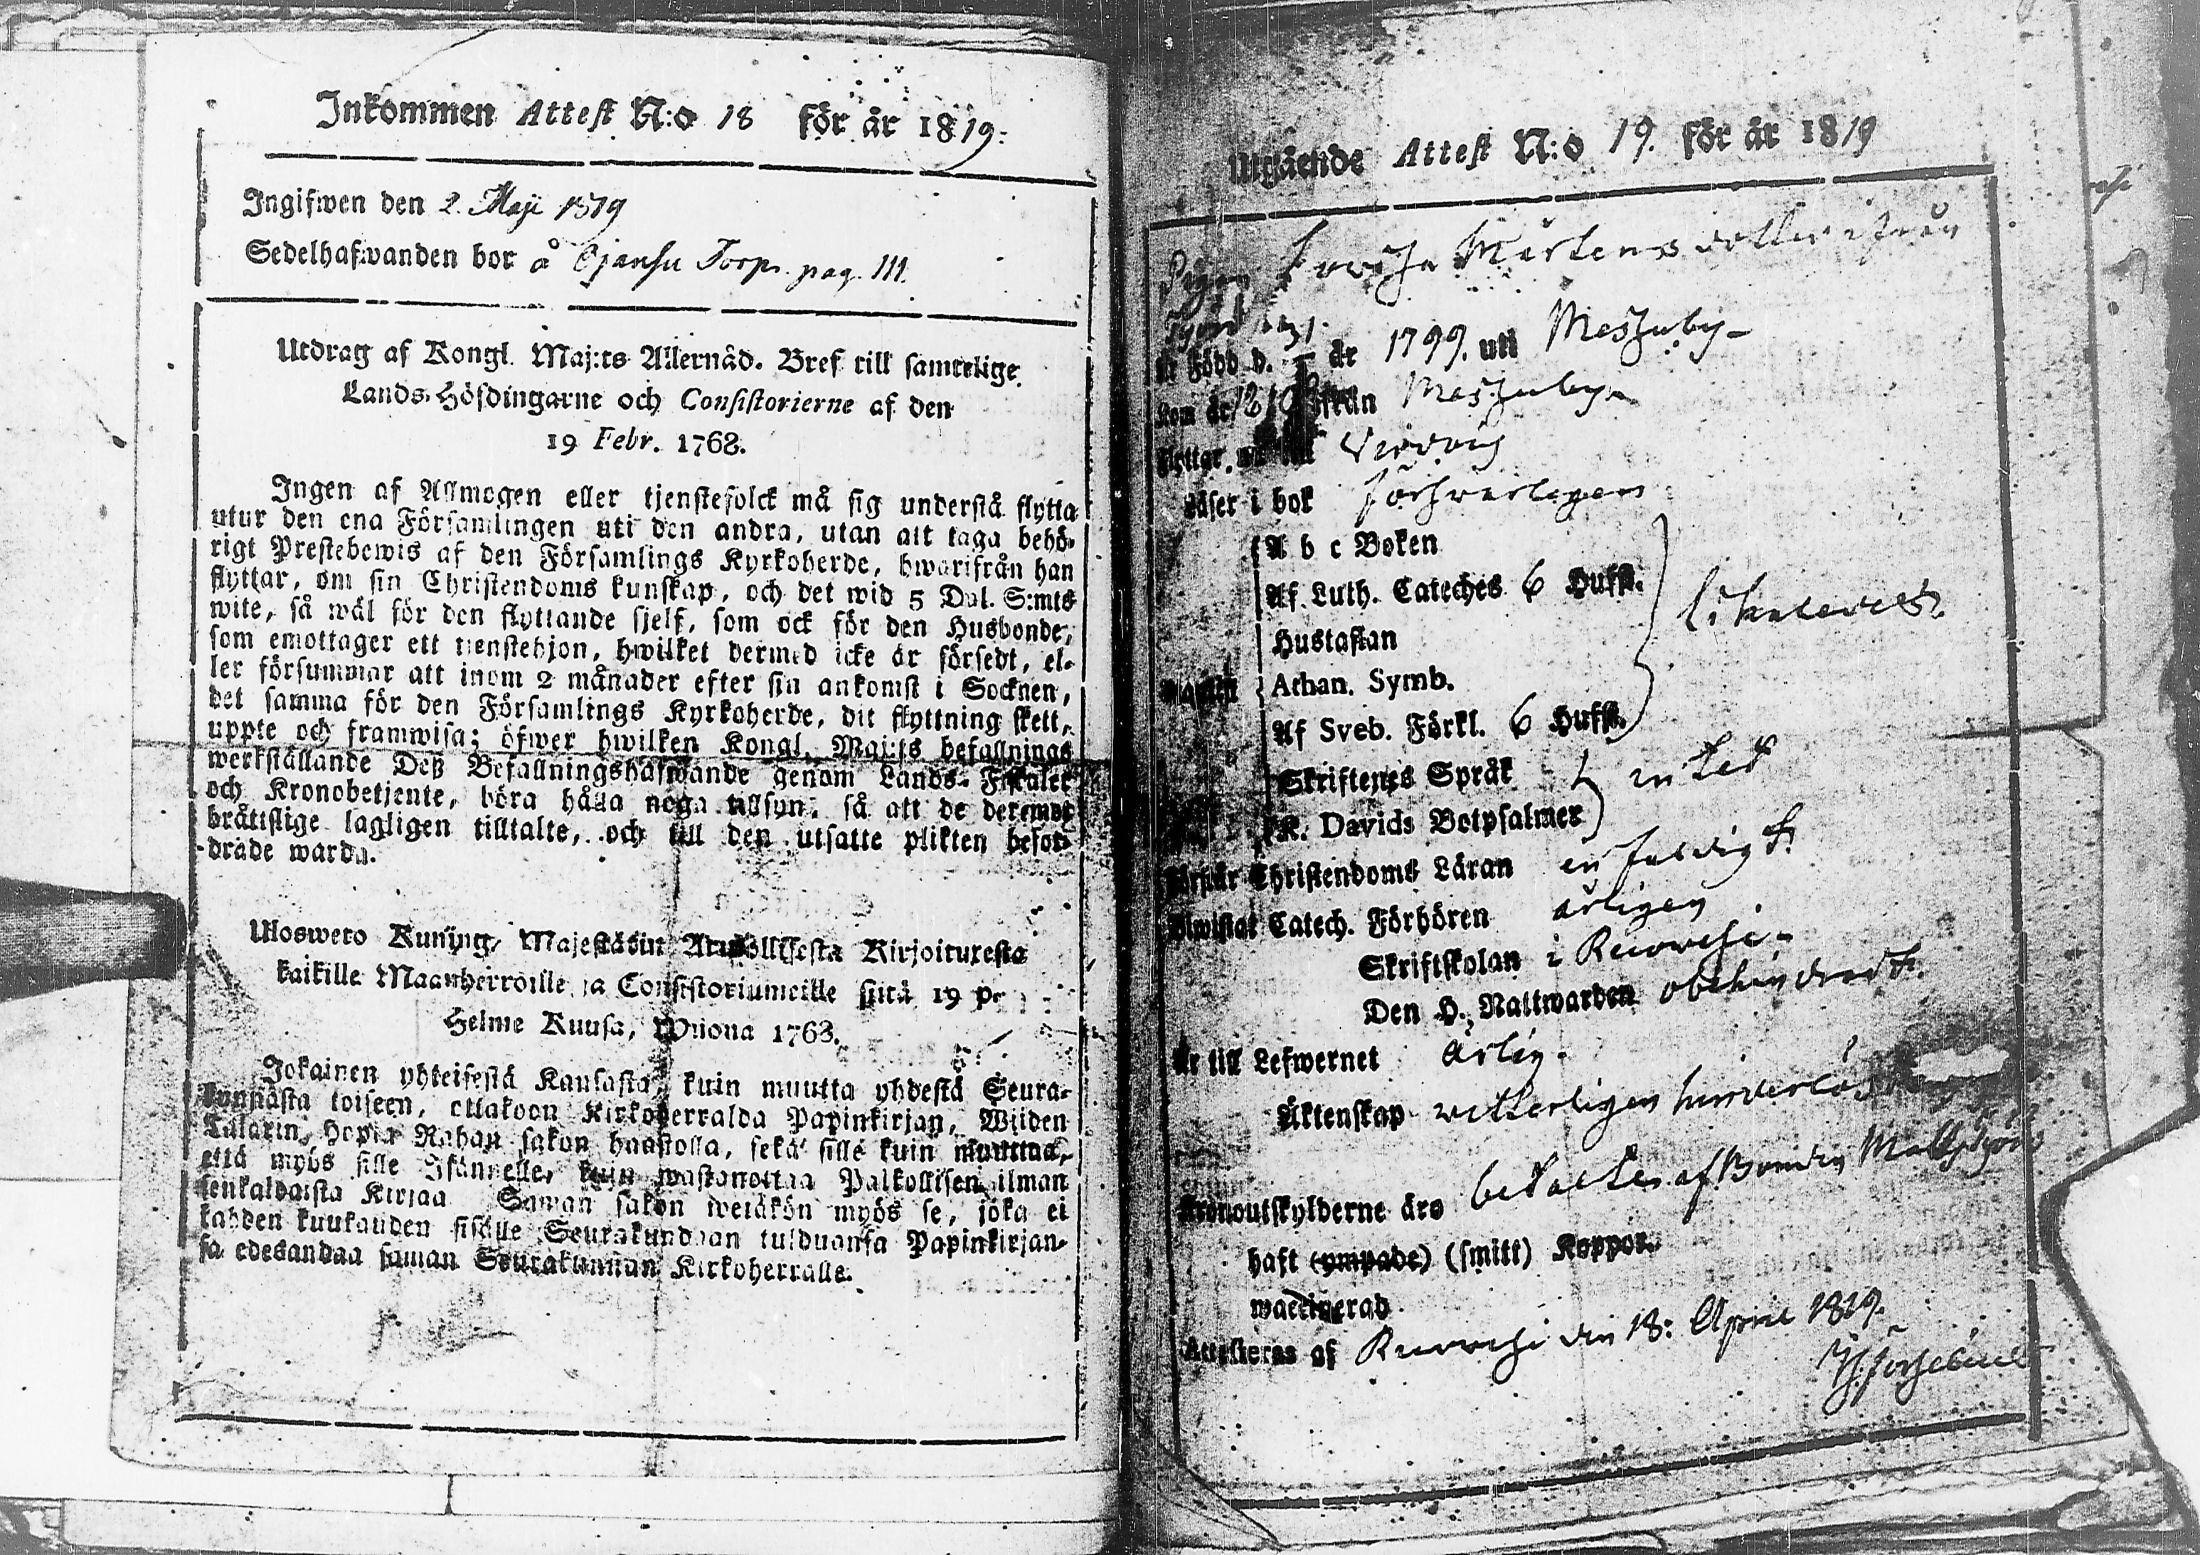 Inkommen Attest N:o 18 för år 1819.
Ingifwen den 2. Maji 1819
Sedelhafwanden bor å Ojansu Torp. pag. 111.
Utdrag af Kongl. Maj:ts Allernåd. Bref till samtelige
Lands-Höfdingarne och Consistorierne af den
19 Febr. 1768.
Ingen af Allmogen eller tjenstefolck må sig understå flytta
utur den ena Församlingen uti den andra, utan att taga behö-
rigt Prestebewis af den Församlings Kyrkoherde, hwarifrån han
flyttar, om sin Christendoms kunskap, och det wid 5 Dal. S:mts
wite, så wäl för den flyttande sjelf, som ock för den Husbonde,
som emottager ett tienstehjon, hwilket dermed icke är försedt, el-
ler försummar att inom 2 månader efter sin ankomst i Socknen,
det samma för den Församlings Kyrkoherde, dit flyttning skett,
uppte och framwisa; öfwer hwilken Kongl. Maj:ts befallnings
werkställande Deß Befallningshafwande genom Lands-Fiskaler
och Kronobetjente, böra hålla noga tillsyn, så att de deremot
bråttslige lagligen tilltalte, och till den utsatte plikten befor-
drade warda.
Uloswetto Kuning. Majestätin Armollisesta Kirjoituxesta
kaikille Maanherroille ja Consistoriumeille siitä 19 p.
Helme Kuusa, Wuona 1768.
Jokainen yhteisestä Kansasta, kuin muutta yhdestä Seura-
kunnasta toiseen, ottakoon Kirkoherralda Papinkirjan, Wijden
Talarin Hopia Rahan sakon haastolla, sekä sille kuin muuttaa,
että myös sille Isännelle, kuin wastanottaa Palkollisen ilman
senkaldaista Kirjaa Saman sakon wetäkön myös se, joka ei
kahden kuukauden sisälle Seurakundaan tulduansa Papinkirjan-
sa edesandaa saman Seurakunnan Kirkoherralle.
Utgående Attest N:o 19. för år 1819
Pigan Mårtensdotter ifrån
är född d. år 1799. uti Meskuby
kom år ifrån Meskuby
flyttar Wirdois
Läser i bok försvarligen
A b c Boken
Af Luth. Cateches 6 Hufst.
Hustaflan
likaledes.
Athan. Symb.
Af Sveb. Förkl. 6 Hufst.
Skriftenes Språk
intet
K. Davids Botpsalmer
Förstår Christendoms Läran enfaldigt.
Biwistat Catech. Förhören årligen
Skriftskolan i Ruovesi
Den H. Nattwarden obehindradt.
är till Lefwernet ärlig.
Äktenskap wetterligen hinderlös
Kronoutskylderne äro betalte af Bonden
haft (ympade) (smitt) Koppor.
waccinerad
Attesteras af Ruovesi den 18: April 1819.